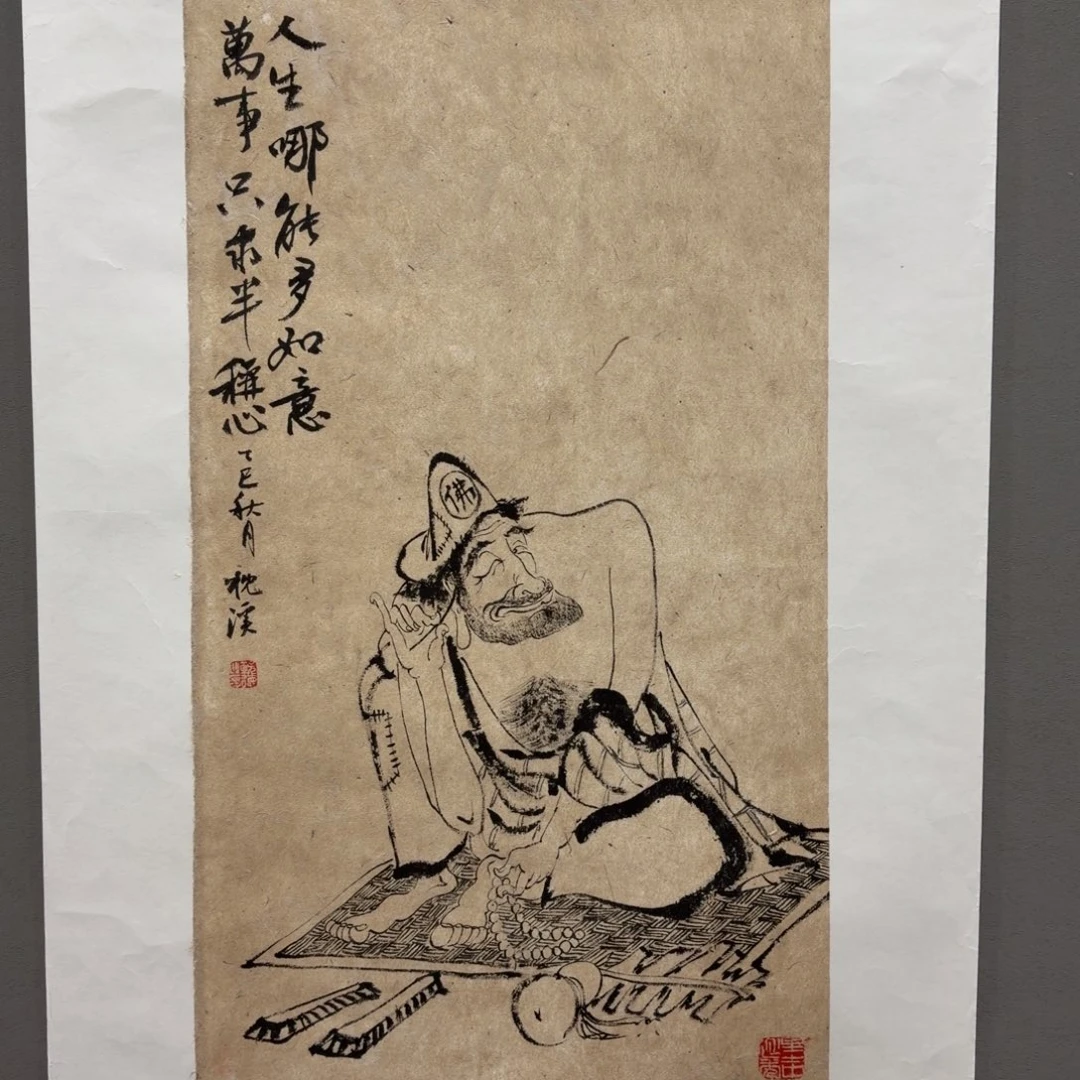 人生哪能多如意
萬事只求半稱心
乙巳秋月
枕溪
佛